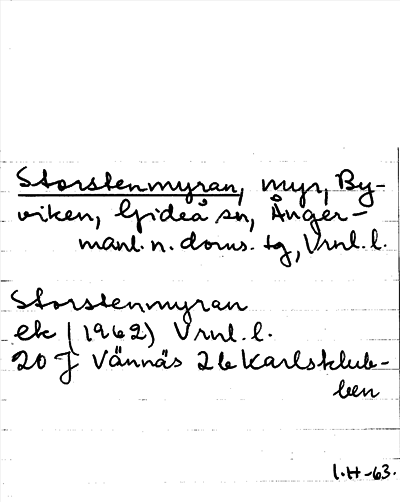 Storstenmyran, myr, By-
viken, Gideå sn, Ånger-
manl. n. doms. tg, Vrnl. l.
Storstenmyran
ek (1962) Vrnl. l.
20 J Vännäs 2b Karlsklub-
ben
I.H-63.